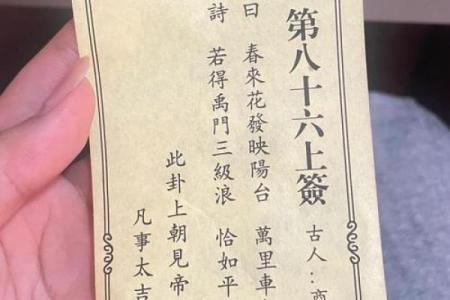 第八十六上簽
古人：商
曰 春來花發映陽台 萬里車
詩 若得禹門三級浪 恰如平
此卦上朝見帝
凡事太吉